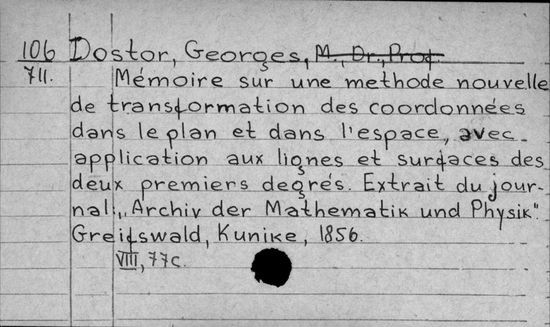 106 Dostor, Georges, M., Dr., Prof.
711. Mémoire sur une methode nouvelle
de transformation des coordonnées
dans le plan et dans l'espace, avec
application aux lignes et surfaces des
deux premiers degrés. Extrait du jour-
nal: „Archiv der Mathematik und Physik".
Greifswald, Kunike, 1856.
VIII, 77c.